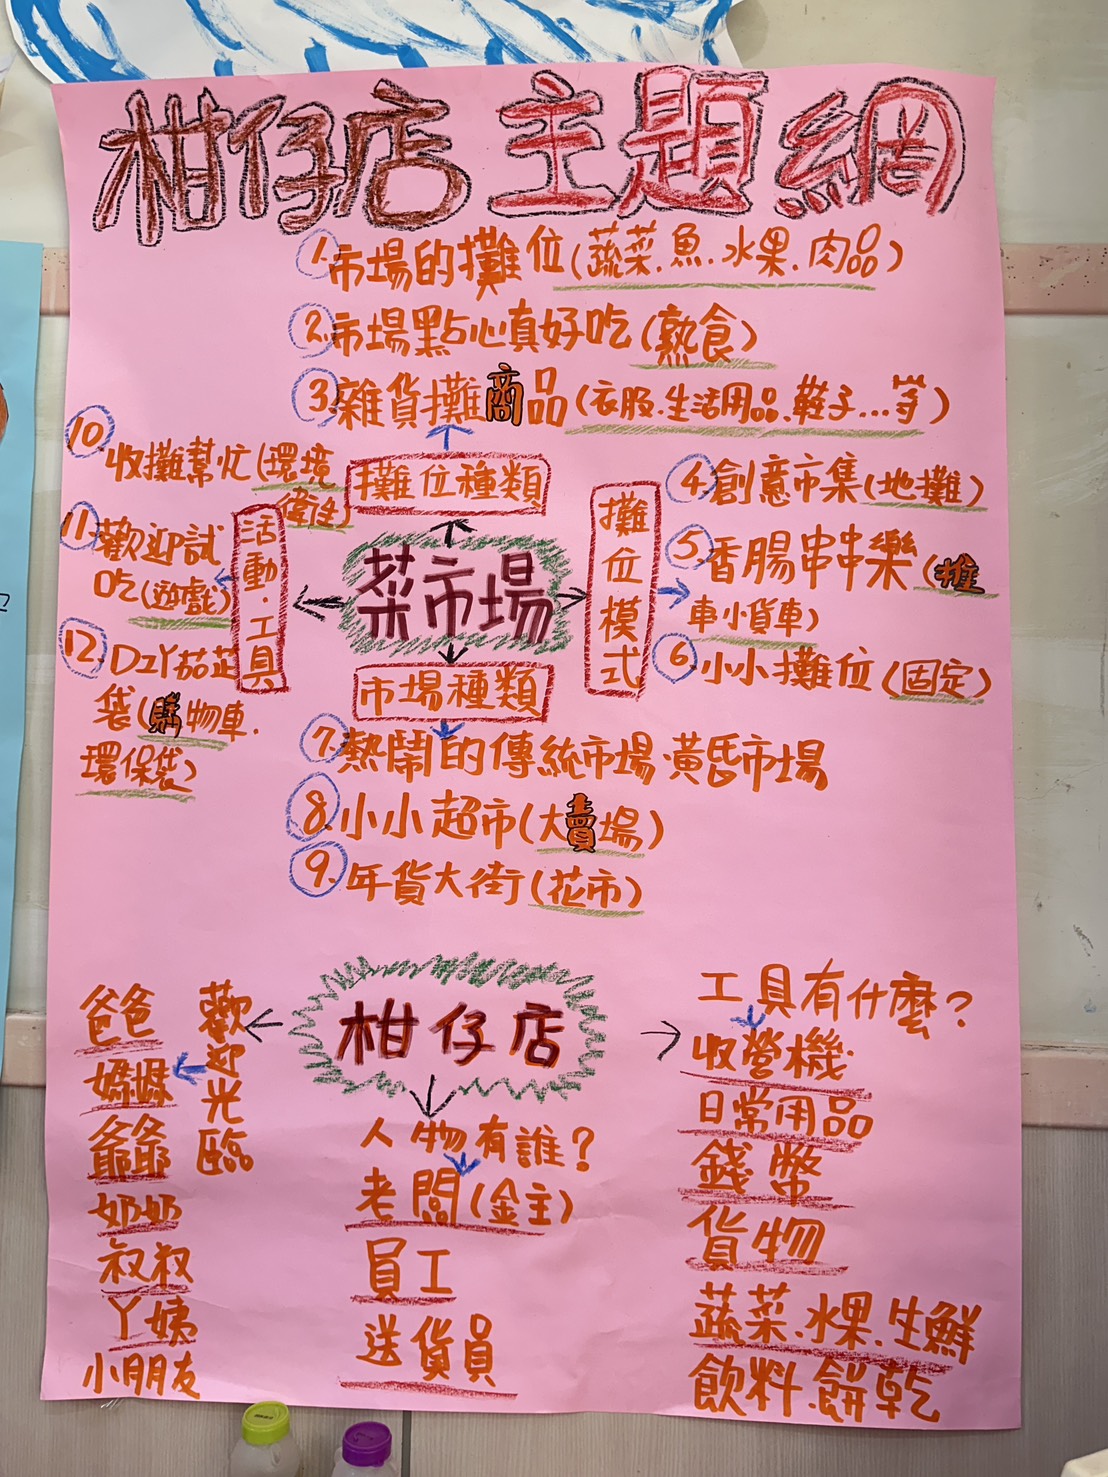 柑仔店主題網
1.市場的攤位(蔬菜.魚.水果.肉品)
2.市場點心真好吃(熟食)
3.雜貨攤商品(衣服.生活用品.鞋子...等)
攤位種類
10.收攤幫忙(環境
衛生)
11.歡迎試
吃(遊戲)
12.DIY茄芷
袋(購物車.
環保袋)
活動.工具
菜市場
攤位模式
4.創意市集(地攤)
5.香腸串串樂(推
車小貨車)
6.小小攤位(固定)
市場種類
7.熱鬧的傳統市場.黃昏市場
8.小小超市(大賣場)
9.年貨大街(花市)
柑仔店
歡迎光臨
爸爸
媽媽
爺爺
奶奶
叔叔
丫姨
小朋友
人物有誰?
老闆(金主)
員工
送貨員
工具有什麼?
收營機.
日常用品
錢幣
貨物
蔬菜.水果.生鮮
飲料.餅乾